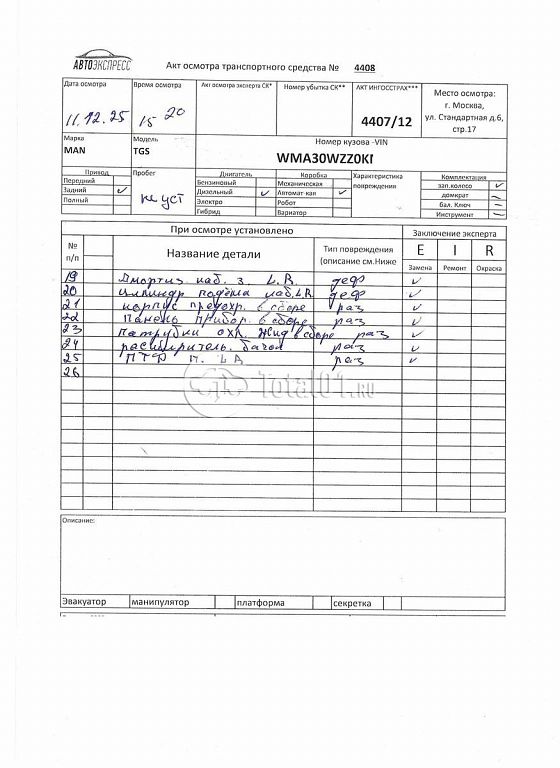 АВТОЭКСПРЕСС
Акт осмотра транспортного средства № 4408
Дата осмотра Время осмотра Акт осмотра эксперта СК* Номер убытка СК** АКТ ИНГОССТРАХ*** Место осмотра:
11.12.25 15 20 4407/12 г. Москва, ул. Стандартная д.6, стр.17
Марка Модель Номер кузова -VIN
MAN TGS WMA30WZZ0KI
Привод Пробег Двигатель Коробка Характеристика повреждения Комплектация
Передний не уст Бензиновый Механическая зап.колесо ✓
Задний ✓ Дизельный ✓ Автомат-кая ✓ домкрат
Полный Электро Робот бал. Ключ ✓
Гибрид Вариатор Инструмент ✓
При осмотре установлено Заключение эксперта
№ п/п Название детали Тип повреждения (описание см.Ниже E I R
Замена Ремонт Окраска
19 Амортиз каб. з. L.R. деф ✓
20 цилиндр подъёма каб.L.R деф ✓
21 корпус предохр. в сборе раз ✓
22 Панель прибор. в сборе раз ✓
23 Патрубки охл. жид в сборе раз ✓
24 расширитель. бачок раз ✓
25 ПТФ п. LR раз ✓
26
Total01.RU
Описание:
Эвакуатор манипулятор платформа секретка